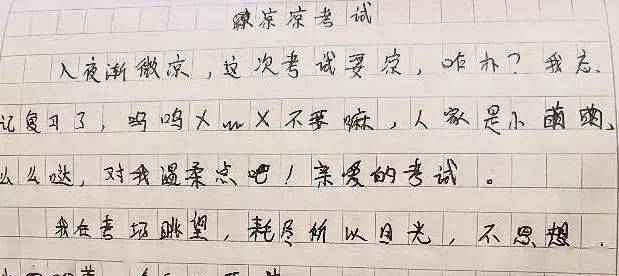 凉凉凉考试
入夜渐微凉，这次考试要凉，咋办？我忘
记复习了，呜呜X﹏X不要嘛，人家是小萌萌、
么么哒，对我温柔点吧！亲爱的考试。
我在考场眺望，耗尽所以目光，不思想，